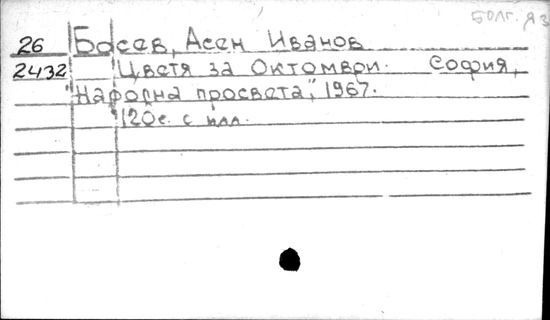 Болг. яз
26 Босев, Асен Иванов
2432 Цветя за Октомври. София,
"Народна просвета", 1967.
120с. с илл.